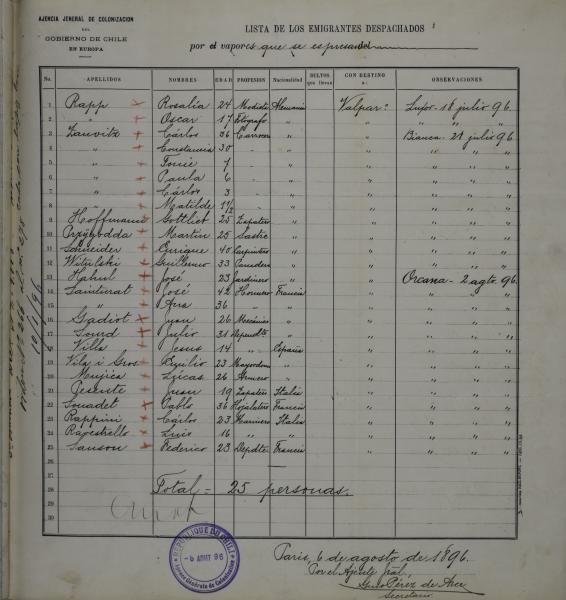 AJENCIA JENERAL DE COLONIZACION
DEL
GOBIERNO DE CHILE
EN EUROPA
LISTA DE LOS EMIGRANTES DESPACHADOS
por el vapores que se espresan del
No. APELLIDOS NOMBRES EDAD PROFESION Nacionalidad BULTOS que llevan CON DESTINO a: OBSERVACIONES
1 Rapp Rosalia 24 Modista Alemania Valpar° Lupor 18 julio 96.
2 " Oscar 17 Fotógrafo " " " " "
3 Zanvitz Cárlos 36 " " Bianca 21 julio 96.
4 " Constancia 30 - " " " " "
5 " 7 - " " " " "
6 " Paula 6 - " " " " "
7 " Cárlos 3 - " " " " "
8 " Matilde 1 1/2 - " " " " "
9 Hoffmann Gottlieb 25 Zapatero " " " " "
10 Przybodda Martin 25 Sastre " " " " "
11 Schneider Enrique 40 Carpintero " " " " "
12 Witulski Guillermo 33 Panadero " " " " "
13 José 23 Jardinero " " Orcana - 2 agto. 96.
14 José 42 Francia " " " "
15 " Ana 36 " " " " "
16 Gadiot Juan 26 Mecánico " " " " "
17 Julio 31 " " " " "
18 Villa Jesus 14 " España " " " "
19 Vila i Gros Emilio 23 Mayordomo " " " " "
20 Mujica Lucas 26 Armero " " " " "
21 Juan 19 Zapatero Italia " " " "
22 Pablo 36 Hojalatero Francia " " " "
23 Rappini Cárlos 23 Italia " " " "
24 Luis 16 " " " " " "
25 Sanson Federico 23 Depdte Francia " " " "
26
27
28 Total = 25 personas.
29
30
REPUBLIQUE DU CHILI
-6 AOUT 96
Agence Générale de Colonisation
Paris, 6 de agosto de 1896.
Por el Ajente jral.
Pérez de Arce
Secretario